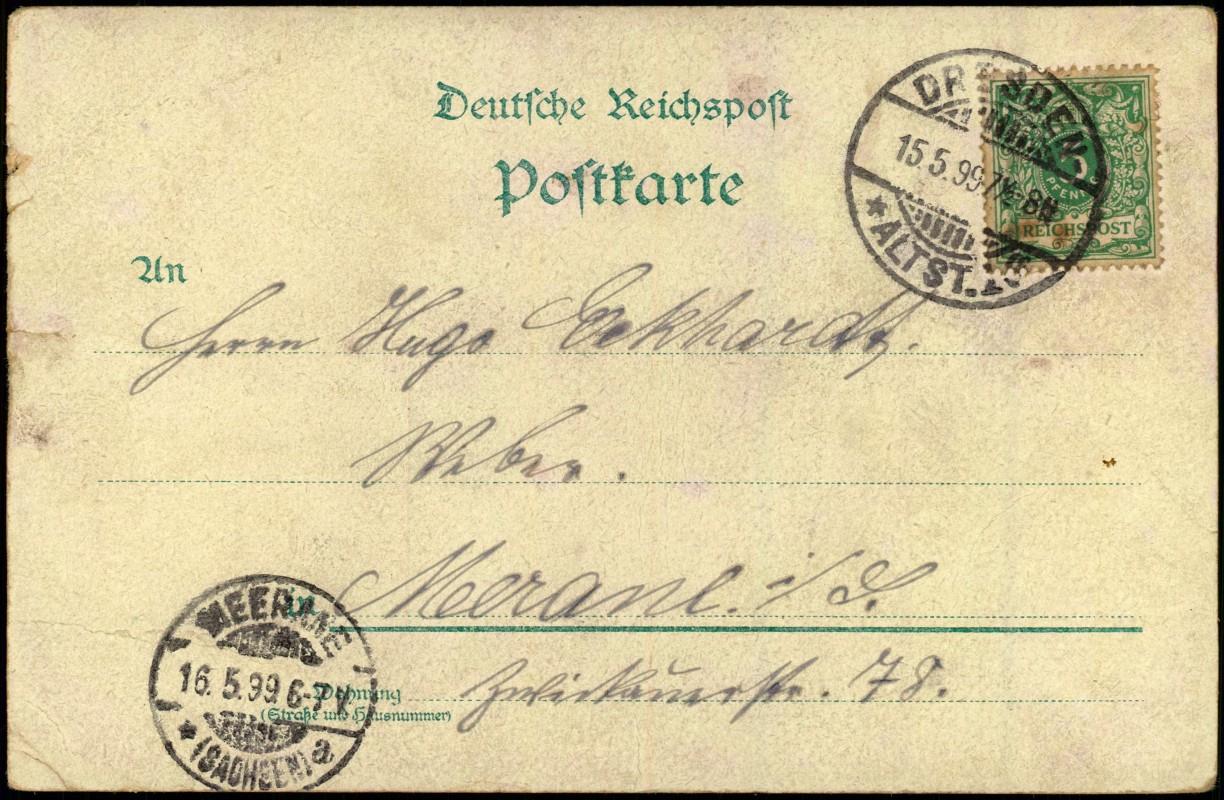 Deutsche Reichspost
Postkarte
DRESDEN
15.5.99.7½-8N
* ALTST.
5
PFENNIG
REICHSPOST
An
Herrn Hugo Eckhardt,
Weber.
in Merane. i/S.
Wohnung Zwickauerstr. 78.
(Straße und Hausnummer)
MEERANE
16.5.99 6-7V.
* (SACHSEN) a